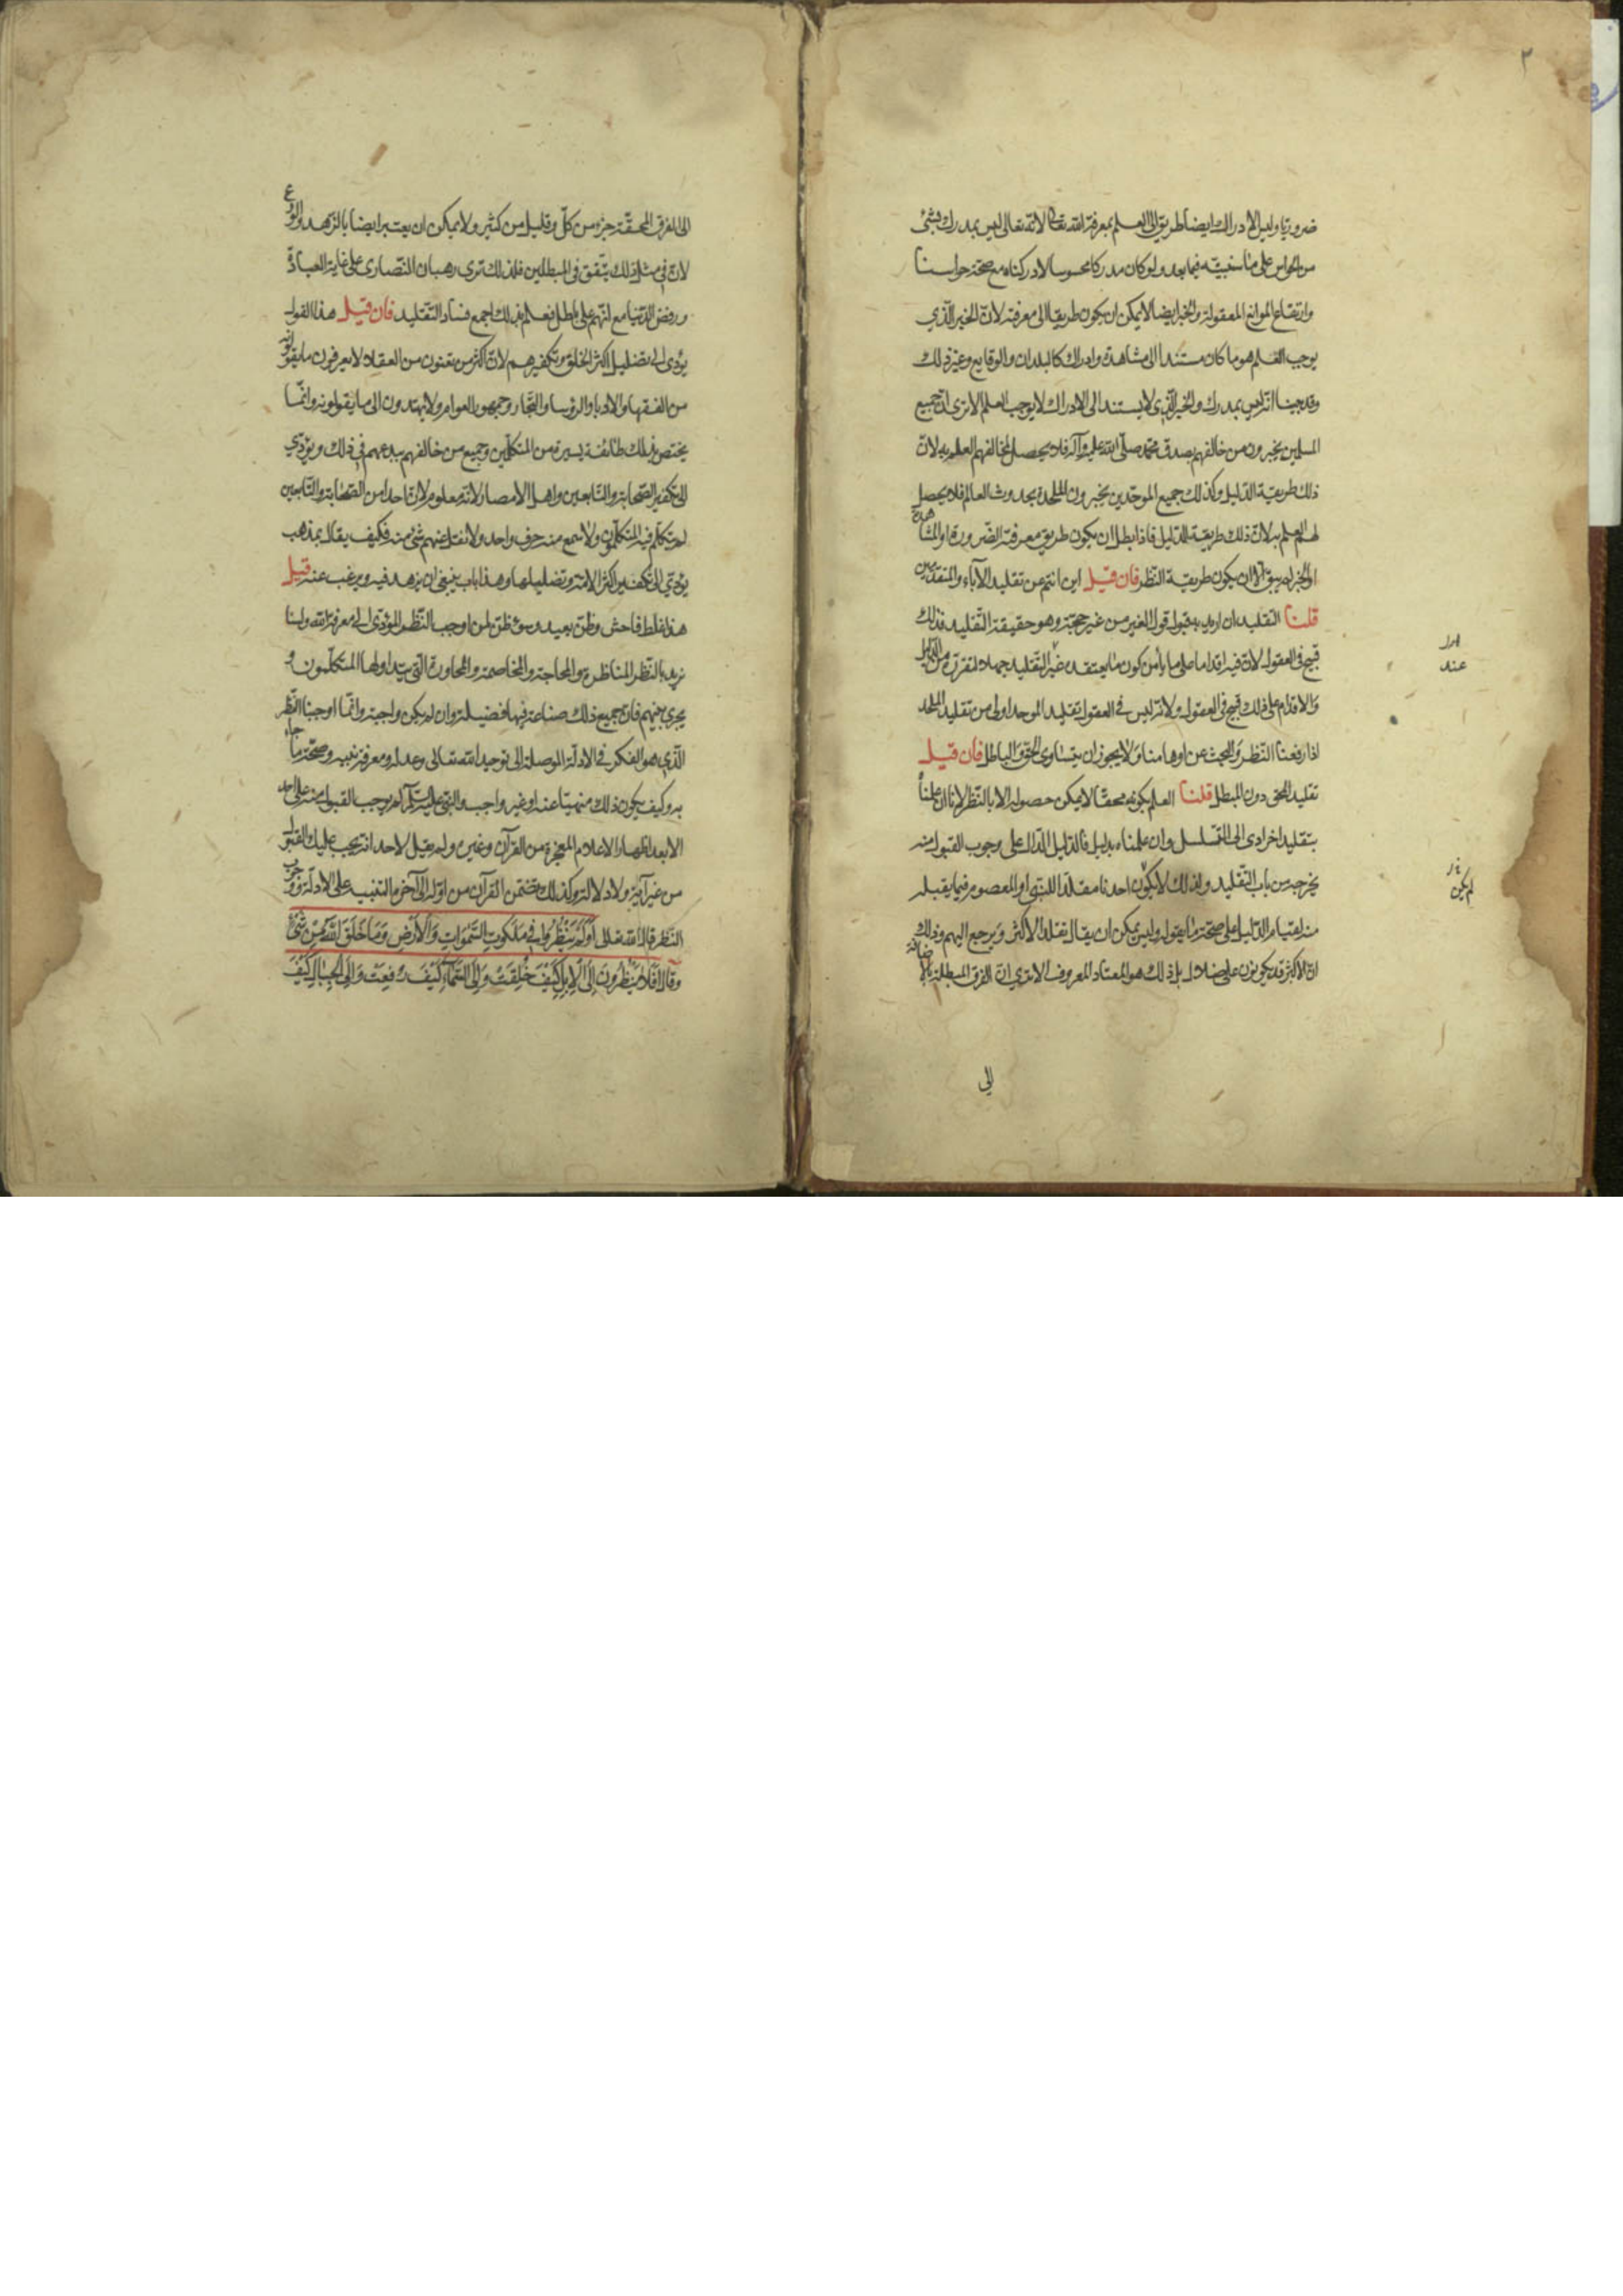 ٢
ضروريا وليس الادراك ايضا طريقا الى العلم بمعرفة الله تعالى لانه تعالى ليس بمدرك بشئ
من الحواس على ما سنبينه فيما بعد ولو كان مدركا محسوسا لادركناه مع صحة حواسنا
وارتفاع الموانع المعقولة والخبر ايضا لا يمكن ان يكون طريقا الى معرفته لان الخبر الذي
يوجب العلم هو ما كان مستندا الى مشاهدة وادراك كالبلدان والوقايع وغير ذلك
وقد بينا انه ليس بمدرك والخبر الذي لا يستند الى الادراك لا يوجب العلم الا ترى ان جميع
المسلمين يخبرون من خالفهم بصدق محمد صلى الله عليه وآله فلا يحصل لمخالفهم العلم به لان
ذلك طريقه الدليل وكذلك جميع الموحدين يخبرون الملحدة بحدوث العالم فلا يحصل
لهم العلم به لان ذلك طريقه الدليل فاذا بطل ان يكون طريق معرفته الضرورة او المشاهدة
او الخبر لم يبق الا ان يكون طريقه النظر فان قيل اين انتم عن تقليد الآباء والمتقدمين
قلنا التقليد ان اريد به قبول قول الغير من غير حجة وهو حقيقة التقليد فذلك
قبيح في العقول لان فيه اقداما على ما لا يأمن كون ما يعتقده عند التقليد جهلا لتعريه من الدليل
والاقدام على ذلك قبيح في العقول ولانه ليس في العقول تقليد الموحد اولى من تقليد الملحد
اذا رفعنا النظر والبحث عن اوهامنا ولا يجوز ان يتساوى الحق والباطل فان قيل
تقليد المحق دون المبطل قلنا العلم بكونه محقا لا يمكن حصوله الا بالنظر لانا ان علمناه
بتقليد اخر ادى الى التسلسل وان علمناه بدليل فالدليل الدال على وجوب القبول منه
يخرجه من باب التقليد ولذلك لا يكون احدنا مقلدا للنبي او المعصوم فيما يقبله
منه لقيام الدليل على صحة ما يقوله وليس يمكن ان يقال يقلد الاكثر ويرجع اليهم وذلك
ان الاكثر قد يكونون على ضلال بل ذلك هو المعتاد المعروف الا ترى ان الفرق المبطلة بالاضافة
عند
لم يكن
الى
الى الفرق المحقة جزء من كل وقليل من كثير ولا يمكن ان يعتبر ايضا بالزهد والورع
لان في مثل ذلك يتفق في المبطلين فلذلك ترى رهبان النصارى على غاية العبادة
ورفض الدنيا مع انهم على باطل فعلم بذلك اجمع فساد التقليد فان قيل هذا القول
يؤدى الى تضليل اكثر الخلق وتكفيرهم لان اكثر من تعنون من العقلاء لا يعرفون ما يقولونه
من الفقهاء والادباء والرؤساء والتجار وجمهور العوام ولا يهتدون الى ما يقولونه وانما
يختص بذلك طائفة يسيرة من المتكلمين وجميع من خالفهم يبدعهم في ذلك ويؤدي
الى تكفير الصحابة والتابعين واهل الامصار لانه معلوم ان احدا من الصحابة والتابعين
لم يتكلم فيما تكلم فيه المتكلمون ولا سمع منه حرف واحد ولا نقل عنهم شئ منه فكيف يقال بمذهب
يؤدي الى تكفير اكثر الامة وتضليلها وهذا باب ينبغي ان يزهد فيه ويرغب عنه قيل
هذا غلط فاحش وظن بعيد وسوء ظن بمن اوجب النظر المؤدى الى معرفة الله ولسنا
نريد بالنظر المناظرة والمحاجة والمخاصمة والمحاورة التي يتداولها المتكلمون و
يجري بينهم فان جميع ذلك صناعة فيها فضيلة وان لم يكن واجبة وانما اوجبنا النظر
الذي هو الفكر في الادلة الموصلة الى توحيد الله تعالى وعدله ومعرفة نبيه وصحة ما جاء
به وكيف يكون ذلك منهيا عنه او غير واجب والنبي عليه السلام لم يوجب القبول منه على احد
الا بعد اظهار الاعلام المعجزة من القرآن وغيره ولم يقل لاحد انه يجب عليك القبول
من غير آية ولا دلالة وكذلك تضمن القرآن من اوله الى آخره التنبيه على الادلة ووجوب
النظر قال الله تعالى اولم ينظروا في ملكوت السموات والارض وما خلق الله من شئ
وقال افلا ينظرون الى الابل كيف خلقت والى السماء كيف رفعت والى الجبال كيف